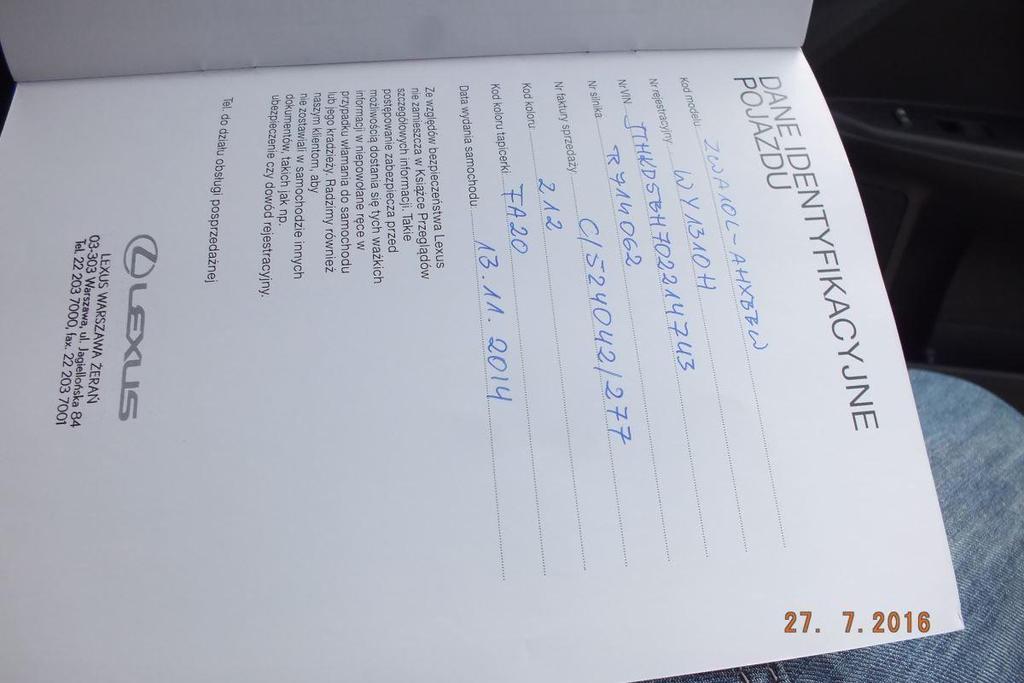 DANE IDENTYFIKACYJNE
POJAZDU
Kod modelu ZWA10L-AHXBBW
Nr rejestracyjny WY1310H
Nr VIN JTHKD5BH702214743
Nr silnika R714062
Nr faktury sprzedaży C/S24042/277
Kod koloru 212
Kod koloru tapicerki FA20
Data wydania samochodu 13.11.2014
Ze względów bezpieczeństwa Lexus
nie zamieszcza w Książce Przeglądów
szczegółowych informacji. Takie
postępowanie zabezpiecza przed
możliwością dostania się tych ważkich
informacji w niepowołane ręce w
przypadku włamania do samochodu
lub jego kradzieży. Radzimy również
naszym klientom, aby
nie zostawiali w samochodzie innych
dokumentów, takich jak np.
ubezpieczenie czy dowód rejestracyjny.
Tel. do działu obsługi posprzedażnej
LEXUS
LEXUS WARSZAWA ŻERAŃ
03-303 Warszawa, ul. Jagiellońska 84
Tel. 22 203 7000, fax. 22 203 7001
27. 7.2016